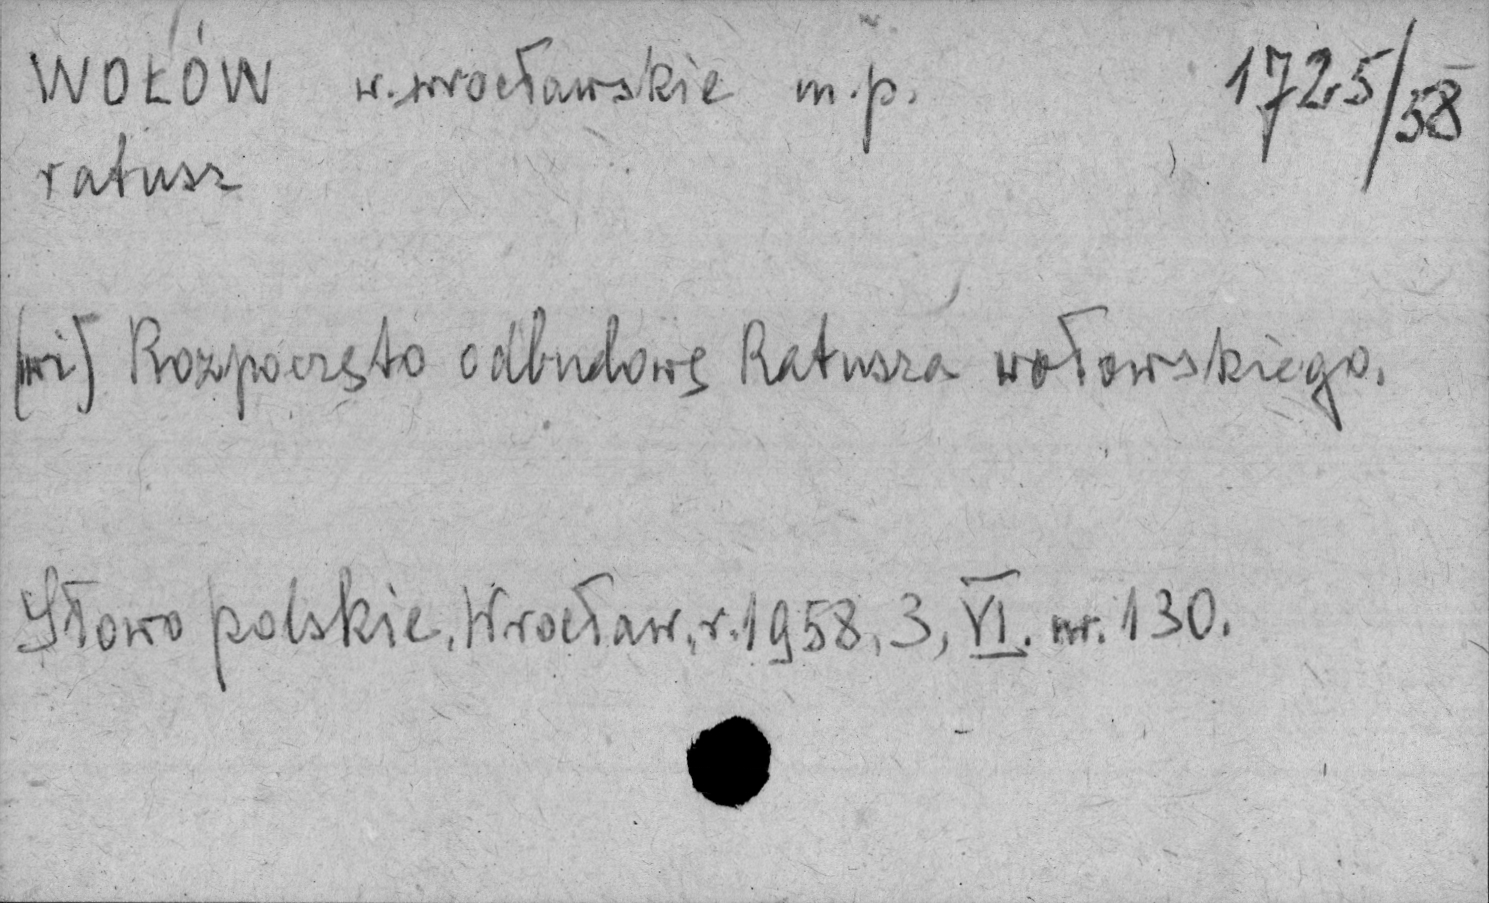 WOŁÓW w. wrocławskie m.p. 1725/58
ratusz
(wi) Rozpoczęto odbudowę Ratusza wołowskiego.
Słowo polskie, Wrocław, r. 1958, 3, VI. nr. 130.